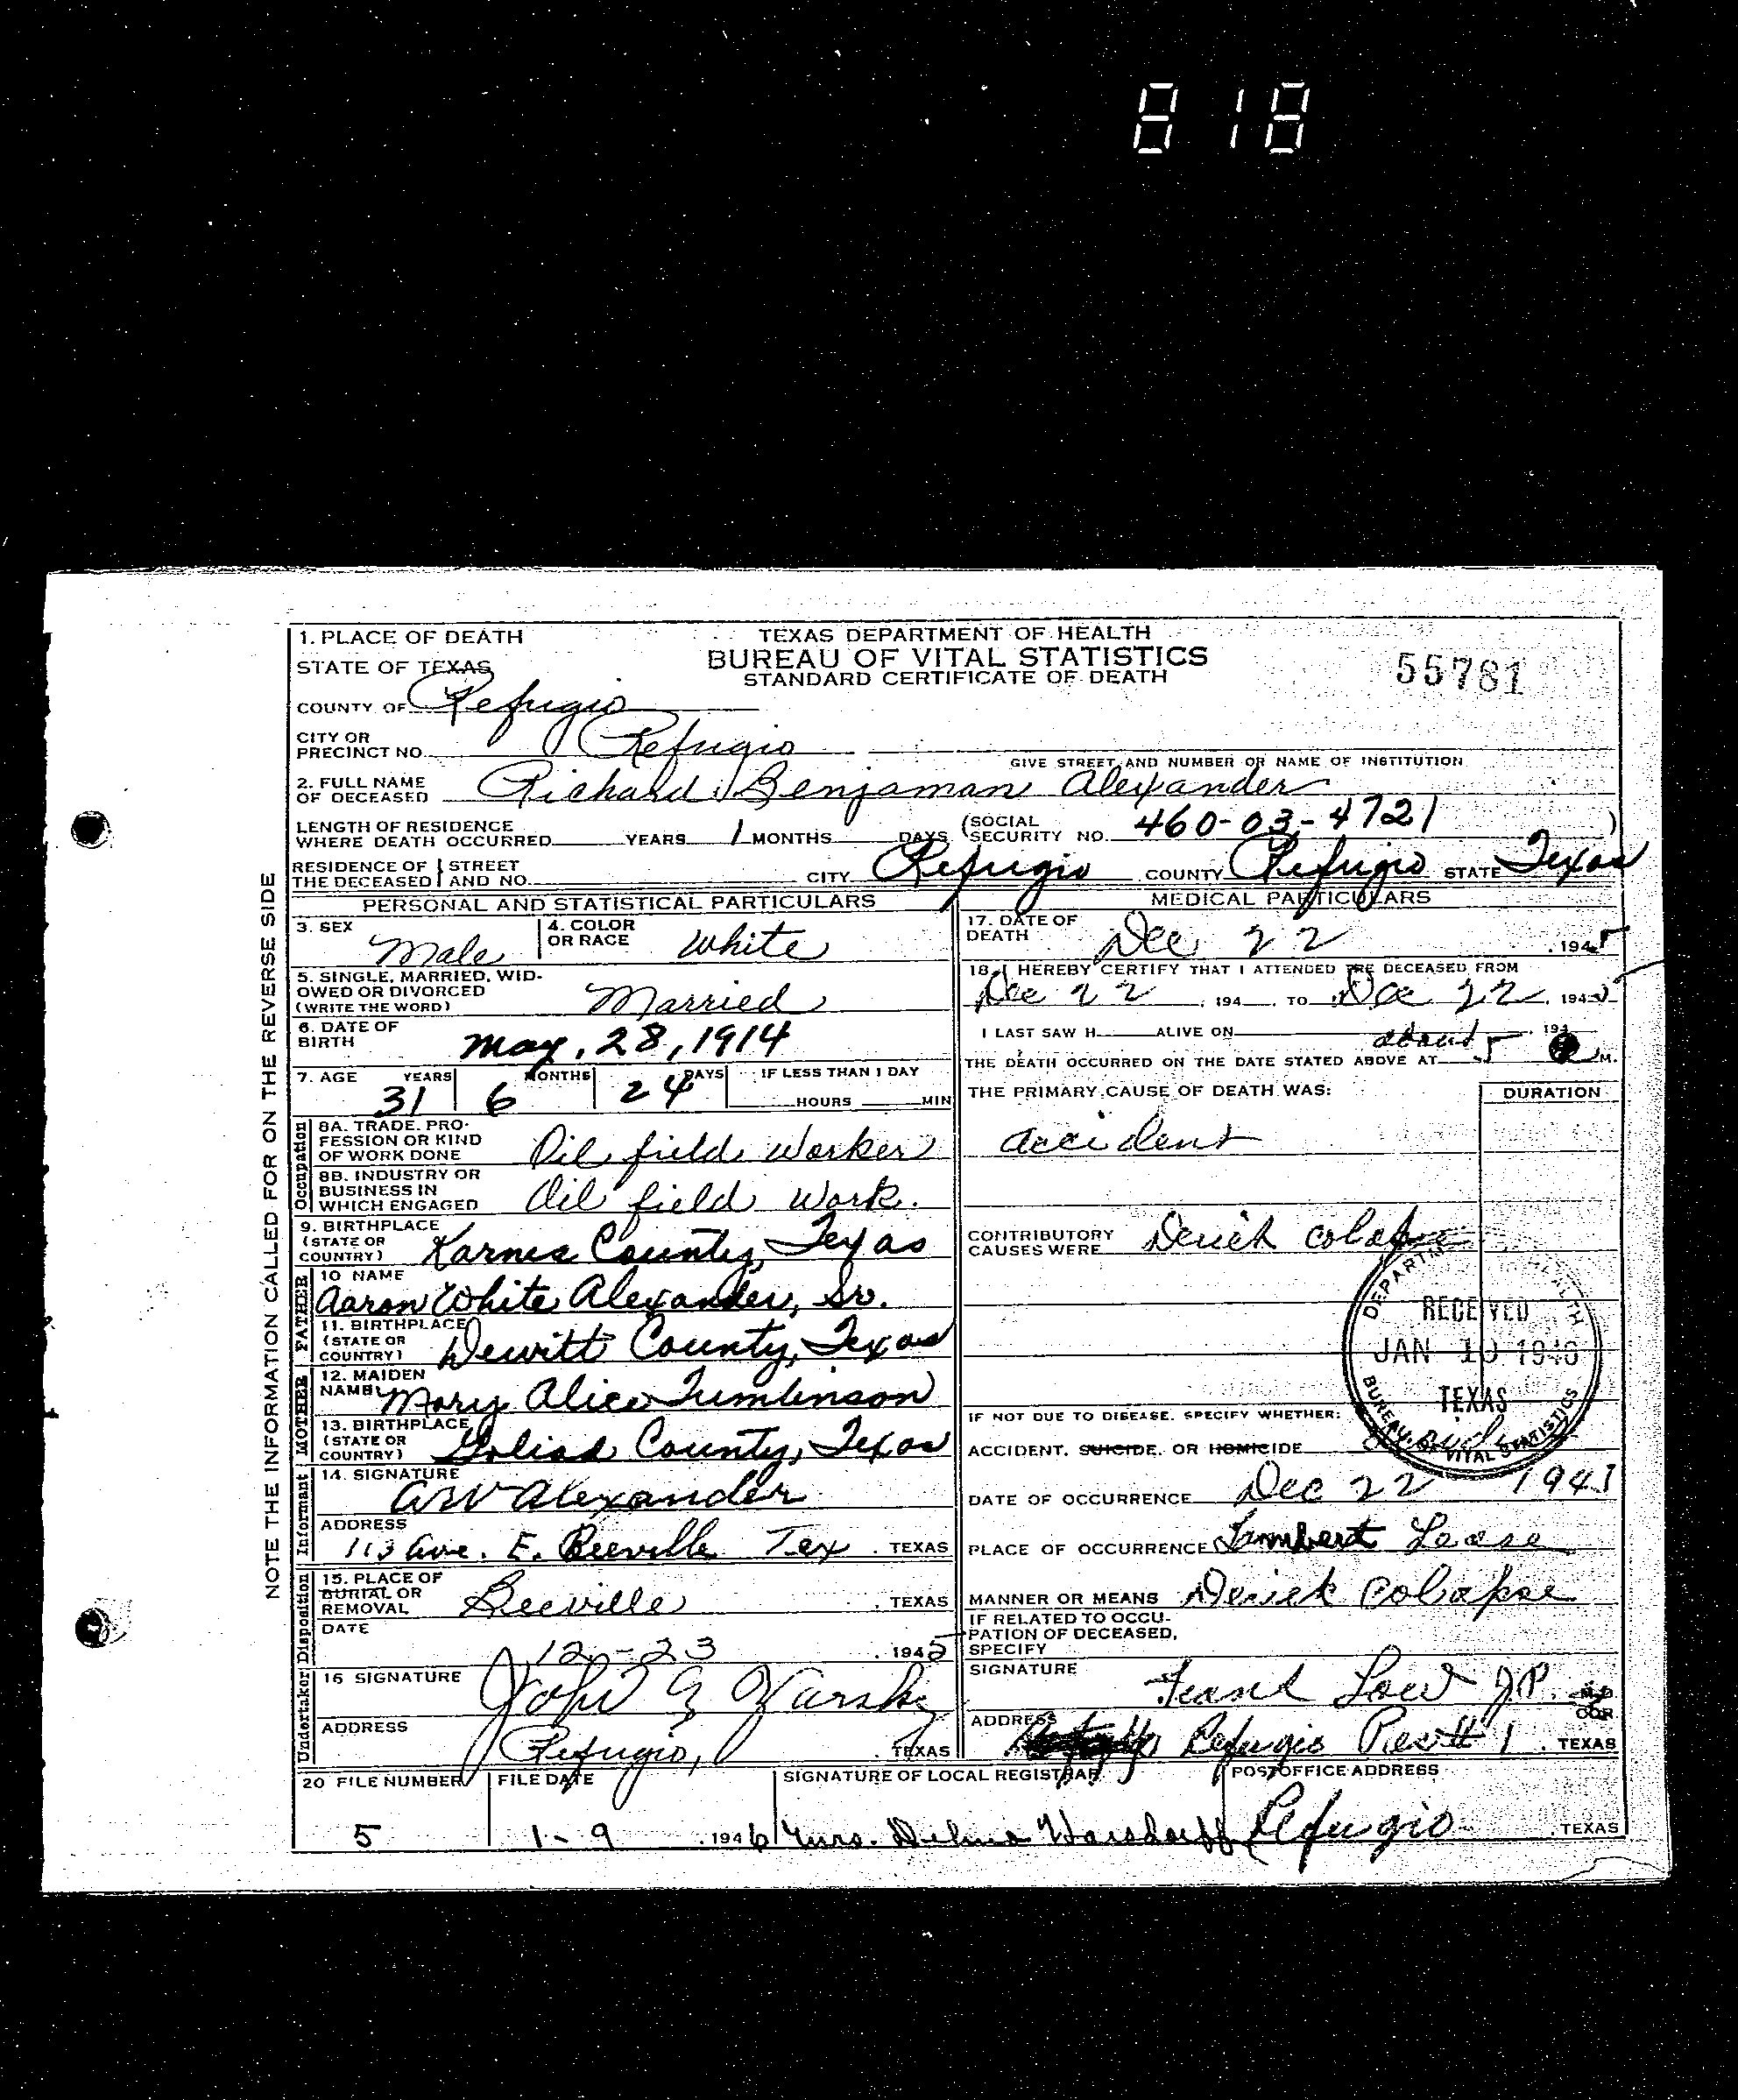 818
1. PLACE OF DEATH
TEXAS DEPARTMENT OF HEALTH
STATE OF TEXAS
BUREAU OF VITAL STATISTICS
STANDARD CERTIFICATE OF DEATH
55781
COUNTY OF Refugio
CITY OR PRECINCT NO. Refugio
GIVE STREET AND NUMBER OR NAME OF INSTITUTION
2. FULL NAME OF DECEASED Richard Benjaman Alexander
LENGTH OF RESIDENCE WHERE DEATH OCCURRED YEARS 1 MONTHS DAYS (SOCIAL SECURITY NO. 460-03-4721 )
RESIDENCE OF THE DECEASED STREET AND NO. CITY Refugio COUNTY Refugio STATE Texas
NOTE THE INFORMATION CALLED FOR ON THE REVERSE SIDE
PERSONAL AND STATISTICAL PARTICULARS
3. SEX Male 4. COLOR OR RACE White
5. SINGLE, MARRIED, WIDOWED OR DIVORCED (WRITE THE WORD) Married
6. DATE OF BIRTH May, 28, 1914
7. AGE YEARS 31 MONTHS 6 DAYS 24 IF LESS THAN 1 DAY HOURS MIN
Occupation
8A. TRADE, PROFESSION OR KIND OF WORK DONE Oil field Worker
8B. INDUSTRY OR BUSINESS IN WHICH ENGAGED Oil field Work.
9. BIRTHPLACE (STATE OR COUNTRY) Karnes County, Texas
FATHER
10 NAME Aaron White Alexander, Sr.
11. BIRTHPLACE (STATE OR COUNTRY) Dewitt County, Texas
MOTHER
12. MAIDEN NAME Mary Alice Tumlinson
13. BIRTHPLACE (STATE OR COUNTRY) Goliad County, Texas
Informant
14. SIGNATURE AW Alexander
ADDRESS 113 Ave. E. Beeville Tex. TEXAS
Disposition
15. PLACE OF BURIAL OR REMOVAL Beeville, TEXAS
DATE 12-23, 1945
Undertaker
16 SIGNATURE John
ADDRESS Refugio, TEXAS
MEDICAL PARTICULARS
17. DATE OF DEATH Dec 22, 1945
18. I HEREBY CERTIFY THAT I ATTENDED THE DECEASED FROM
Dec 22, 194 TO Dec 22, 1945
I LAST SAW H ALIVE ON 194
THE DEATH OCCURRED ON THE DATE STATED ABOVE AT about 5 M.
THE PRIMARY CAUSE OF DEATH WAS: DURATION
accident
CONTRIBUTORY CAUSES WERE Derick colapse
DEPARTMENT HEALTH
RECEIVED
JAN 10 1946
TEXAS
BUREAU OF VITAL STATISTICS
IF NOT DUE TO DISEASE, SPECIFY WHETHER:
ACCIDENT, SUICIDE, OR HOMICIDE
DATE OF OCCURRENCE Dec 22 1945
PLACE OF OCCURRENCE Lambert Lease
MANNER OR MEANS Derick Colapse
IF RELATED TO OCCUPATION OF DECEASED, SPECIFY
SIGNATURE Frank Low J.P. COR
ADDRESS Refugio 1. TEXAS
20 FILE NUMBER 5
FILE DATE 1-9, 1946
SIGNATURE OF LOCAL REGISTRAR Mrs.
POSTOFFICE ADDRESS Refugio TEXAS